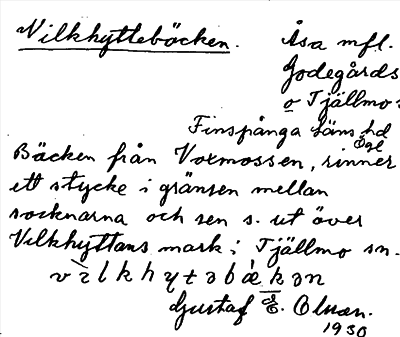 Vilkhyttebäcken.
Åsa mfl.
Godegårds
o Tjällmo s
Finspånga läns hd
Ögl
Bäcken från Voxmossen, rinner
ett stycke i gränsen mellan
socknarna och sen s. ut över
Vilkhyttans mark i Tjällmo sn.
Gustaf E. Olsson.
1930